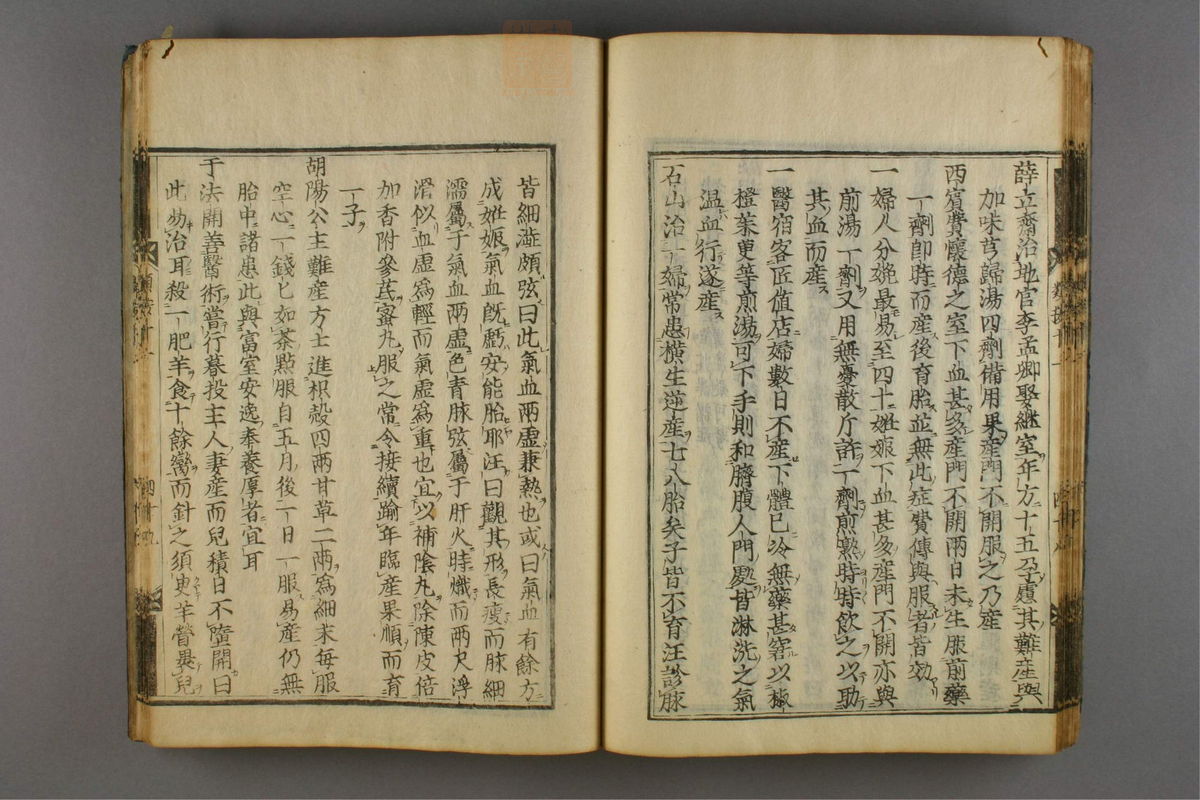 薛立齋治地官李孟卿娶継室年方十五孕慮其難産與
加味芎歸湯四劑備用果産門不開服之乃産
西賓費懷德之室下血甚多産門不開兩日未生服前藥
一劑卽時而産後育胎並無此症費傳與服者皆効
一婦人分娩最易至四十妊娠下血甚多産門不開亦與
前湯一劑又用無憂散斤許一劑煎熟時時飲之以助
其血而産
一醫宿客店値店婦數日不産下體已冷無藥甚窘以椒
橙茱萸等煎湯可下手則和臍腹人門處皆淋洗之氣
温血行遂産
石山治一婦常患横生逆産七八胎矣子皆不育汪診脉
皆細澁頗弦曰此氣血兩虚兼熱也或曰氣血有餘方
成妊娠氣血旣虧安能胎耶汪曰觀其形長瘦而脉細
濡屬于氣血兩虚色青脉弦屬于肝火時熾而兩尺浮
滑似血虚爲輕而氣虚爲重也宜以補陰丸除陳皮倍
加香附參芪蜜丸服之常令接續踰年臨産果順而育
一子
胡陽公主難産方士進枳殼四兩甘草二兩爲細末毎服
空心一錢匕如茶點服自五月後一日一服易産仍無
胎中諸患此與富室安逸奉養厚者宜耳
于法開善醫術嘗行暮投主人妻産而兒積日不墮開曰
此易治耳殺一肥羊食十餘臠而針之須臾羊膋畏兒